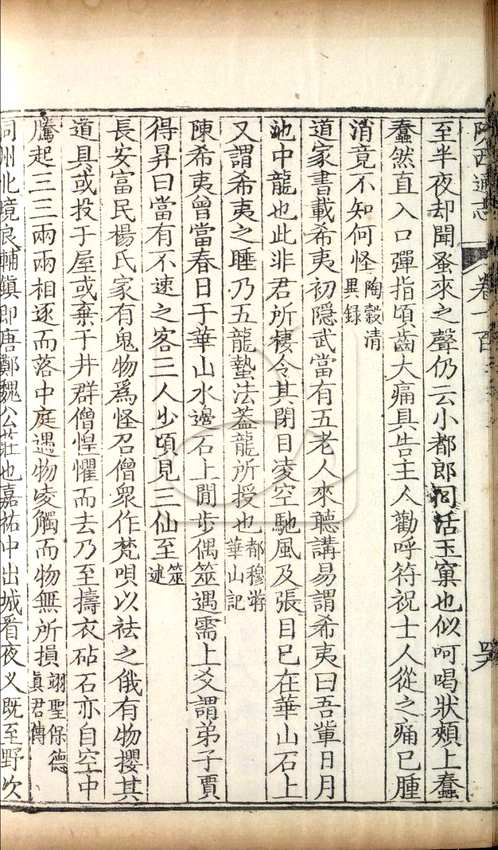 陝西通志 卷一百
至半夜却聞蚤來之聲仍云小都郎回活玉窠也似呵喝狀頰上蠢
蠢然直入口彈指頃齒大痛具告主人勸呼符祝士人從之痛已腫
消竟不知何怪陶穀清異録
道家書載希夷初隱武當有五老人來聽講易謂希夷曰吾輩日月
池中龍也此非君所棲令其閉目凌空馭風及張目已在華山石上
又謂希夷之睡乃五龍蟄法蓋龍所授也都穆游華山記
陳希夷曾當春日于華山水邊石上閒步偶筮遇需上爻謂弟子賈
得昇曰當有不速之客三人少頃見三仙至筮述
長安富民楊氏家有鬼物爲怪召僧衆作梵唄以祛之俄有物攫其
道具或投于屋或棄于井群僧惶懼而去乃至擣衣砧石亦自空中
騰起三三兩兩相逐而落中庭遇物凌觸而物無所損翊聖保德真君傳
同州北境良輔鎮即唐鄭魏公莊也嘉祐中出城看夜义既至野次